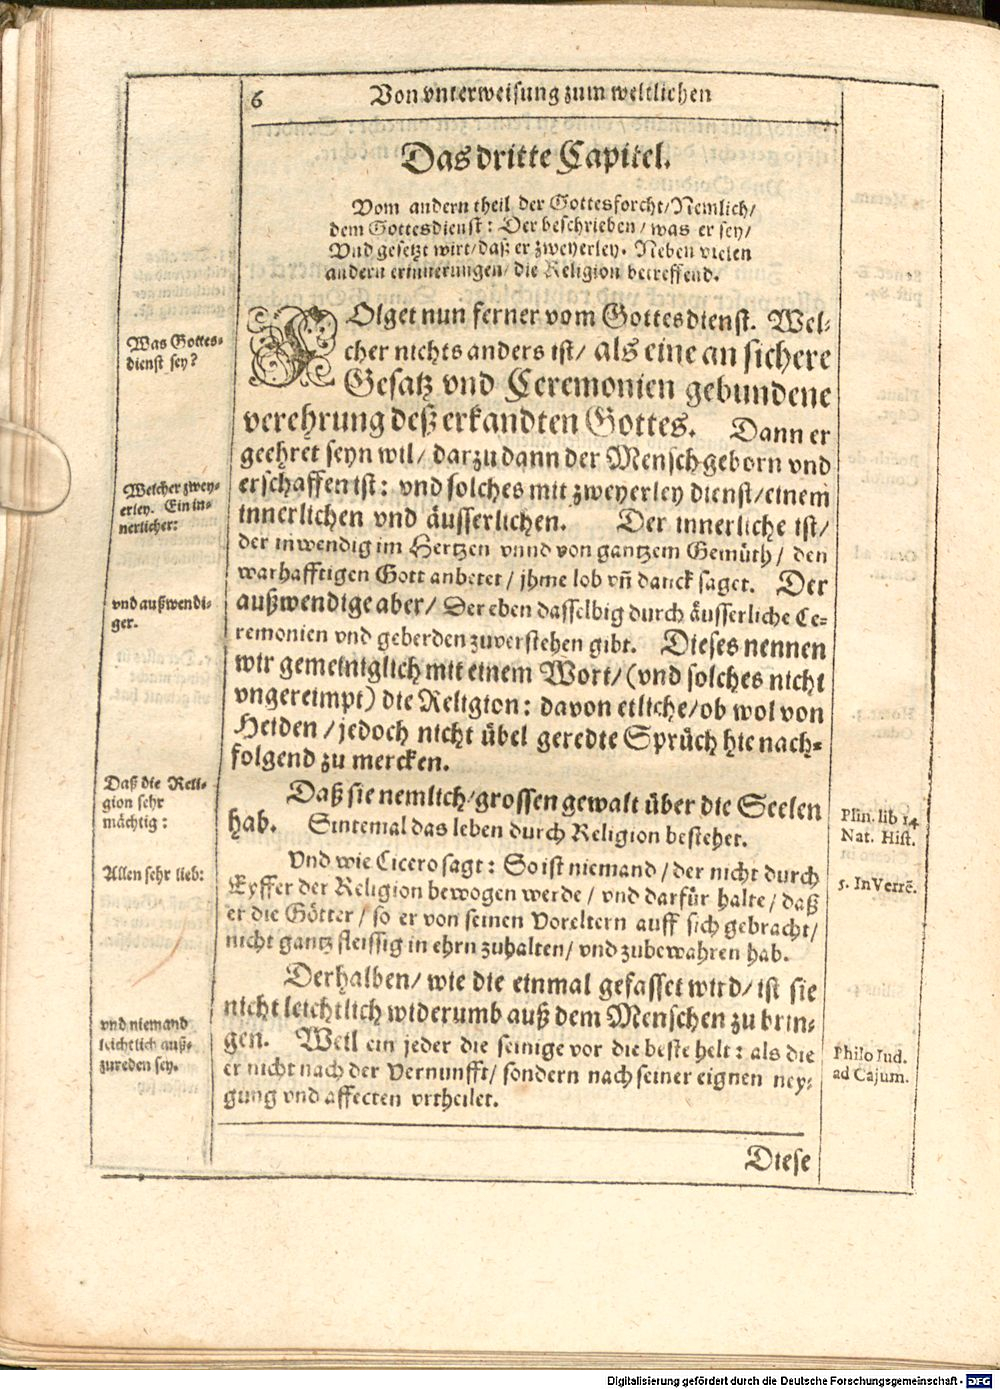 6
Von vnterweisung zum weltlichen
Das dritte Capitel.
Vom andern theil der Gottesforcht/ Nemlich/
dem Gottesdienst: Der beschrieben/ was er sey/
Vnd gesetzt wirt/ daß er zweyerley. Neben vielen
andern erinnerungen/ die Religion betreffend.
Was Gottes-
dienst sey?
FOlget nun ferner vom Gottesdienst. Wel-
cher nichts anders ist/ als eine an sichere
Gesatz vnd Ceremonien gebundene
verehrung deß erkandten Gottes. Dann er
geehret seyn wil/ darzu dann der Mensch geborn vnd
erschaffen ist: vnd solches mit zweyerley dienst/ einem
innerlichen vnd äusserlichen. Der innerliche ist/
der inwendig im Hertzen vnnd von gantzem Gemüth/ den
warhafftigen Gott anbetet/ jhme lob vñ danck saget. Der
außwendige aber/ Der eben dasselbig durch äusserliche Ce-
remonien vnd geberden zuverstehen gibt. Dieses nennen
wir gemeiniglich mit einem Wort/ (vnd solches nicht
vngereimpt) die Religion: davon etliche/ ob wol von
Heiden/ jedoch nicht übel geredte Sprüch hie nach-
folgend zu mercken.
Welcher zwey-
erley. Ein in-
nerlicher:
vnd außwendi-
ger.
Daß die Reli-
gion sehr
mächtig:
Daß sie nemlich/ grossen gewalt über die Seelen
hab. Sintemal das leben durch Religion bestehet.
Plin. lib 14
Nat. Hist.
Allen sehr lieb:
Vnd wie Cicero sagt: So ist niemand/ der nicht durch
Eyffer der Religion bewogen werde/ vnd darfür halte/ daß
er die Götter/ so er von seinen Voreltern auff sich gebracht/
nicht gantz fleissig in ehrn zuhalten/ vnd zubewahren hab.
5. In Verrē.
vnd niemand
leichtlich auß-
zureden sey.
Derhalben/ wie die einmal gefasset wird/ ist sie
nicht leichtlich widerumb auß dem Menschen zu brin-
gen. Weil ein jeder die seinige vor die beste helt: als die
er nicht nach der Vernunfft/ sondern nach seiner eignen ney-
gung vnd affecten vrtheilet.
Philo Iud.
ad Cajum.
Diese
Digitalisierung gefördert durch die Deutsche Forschungsgemeinschaft - DFG